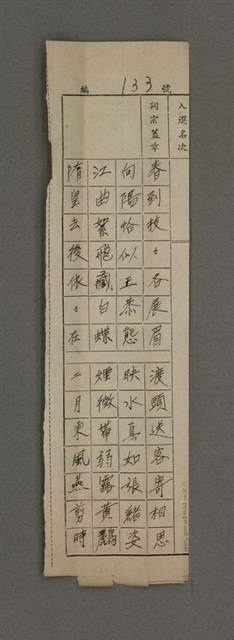 編 133 號
入選名次
詞宗蓋章
春到枝〻各展眉
渡頭送客寄相思
向陽恰似王恭態
映水真如張緒姿
江曲絮飛藏白蝶
煙微帶弱露黃鸝
隋皇去後依〻在
二月東風燕剪時